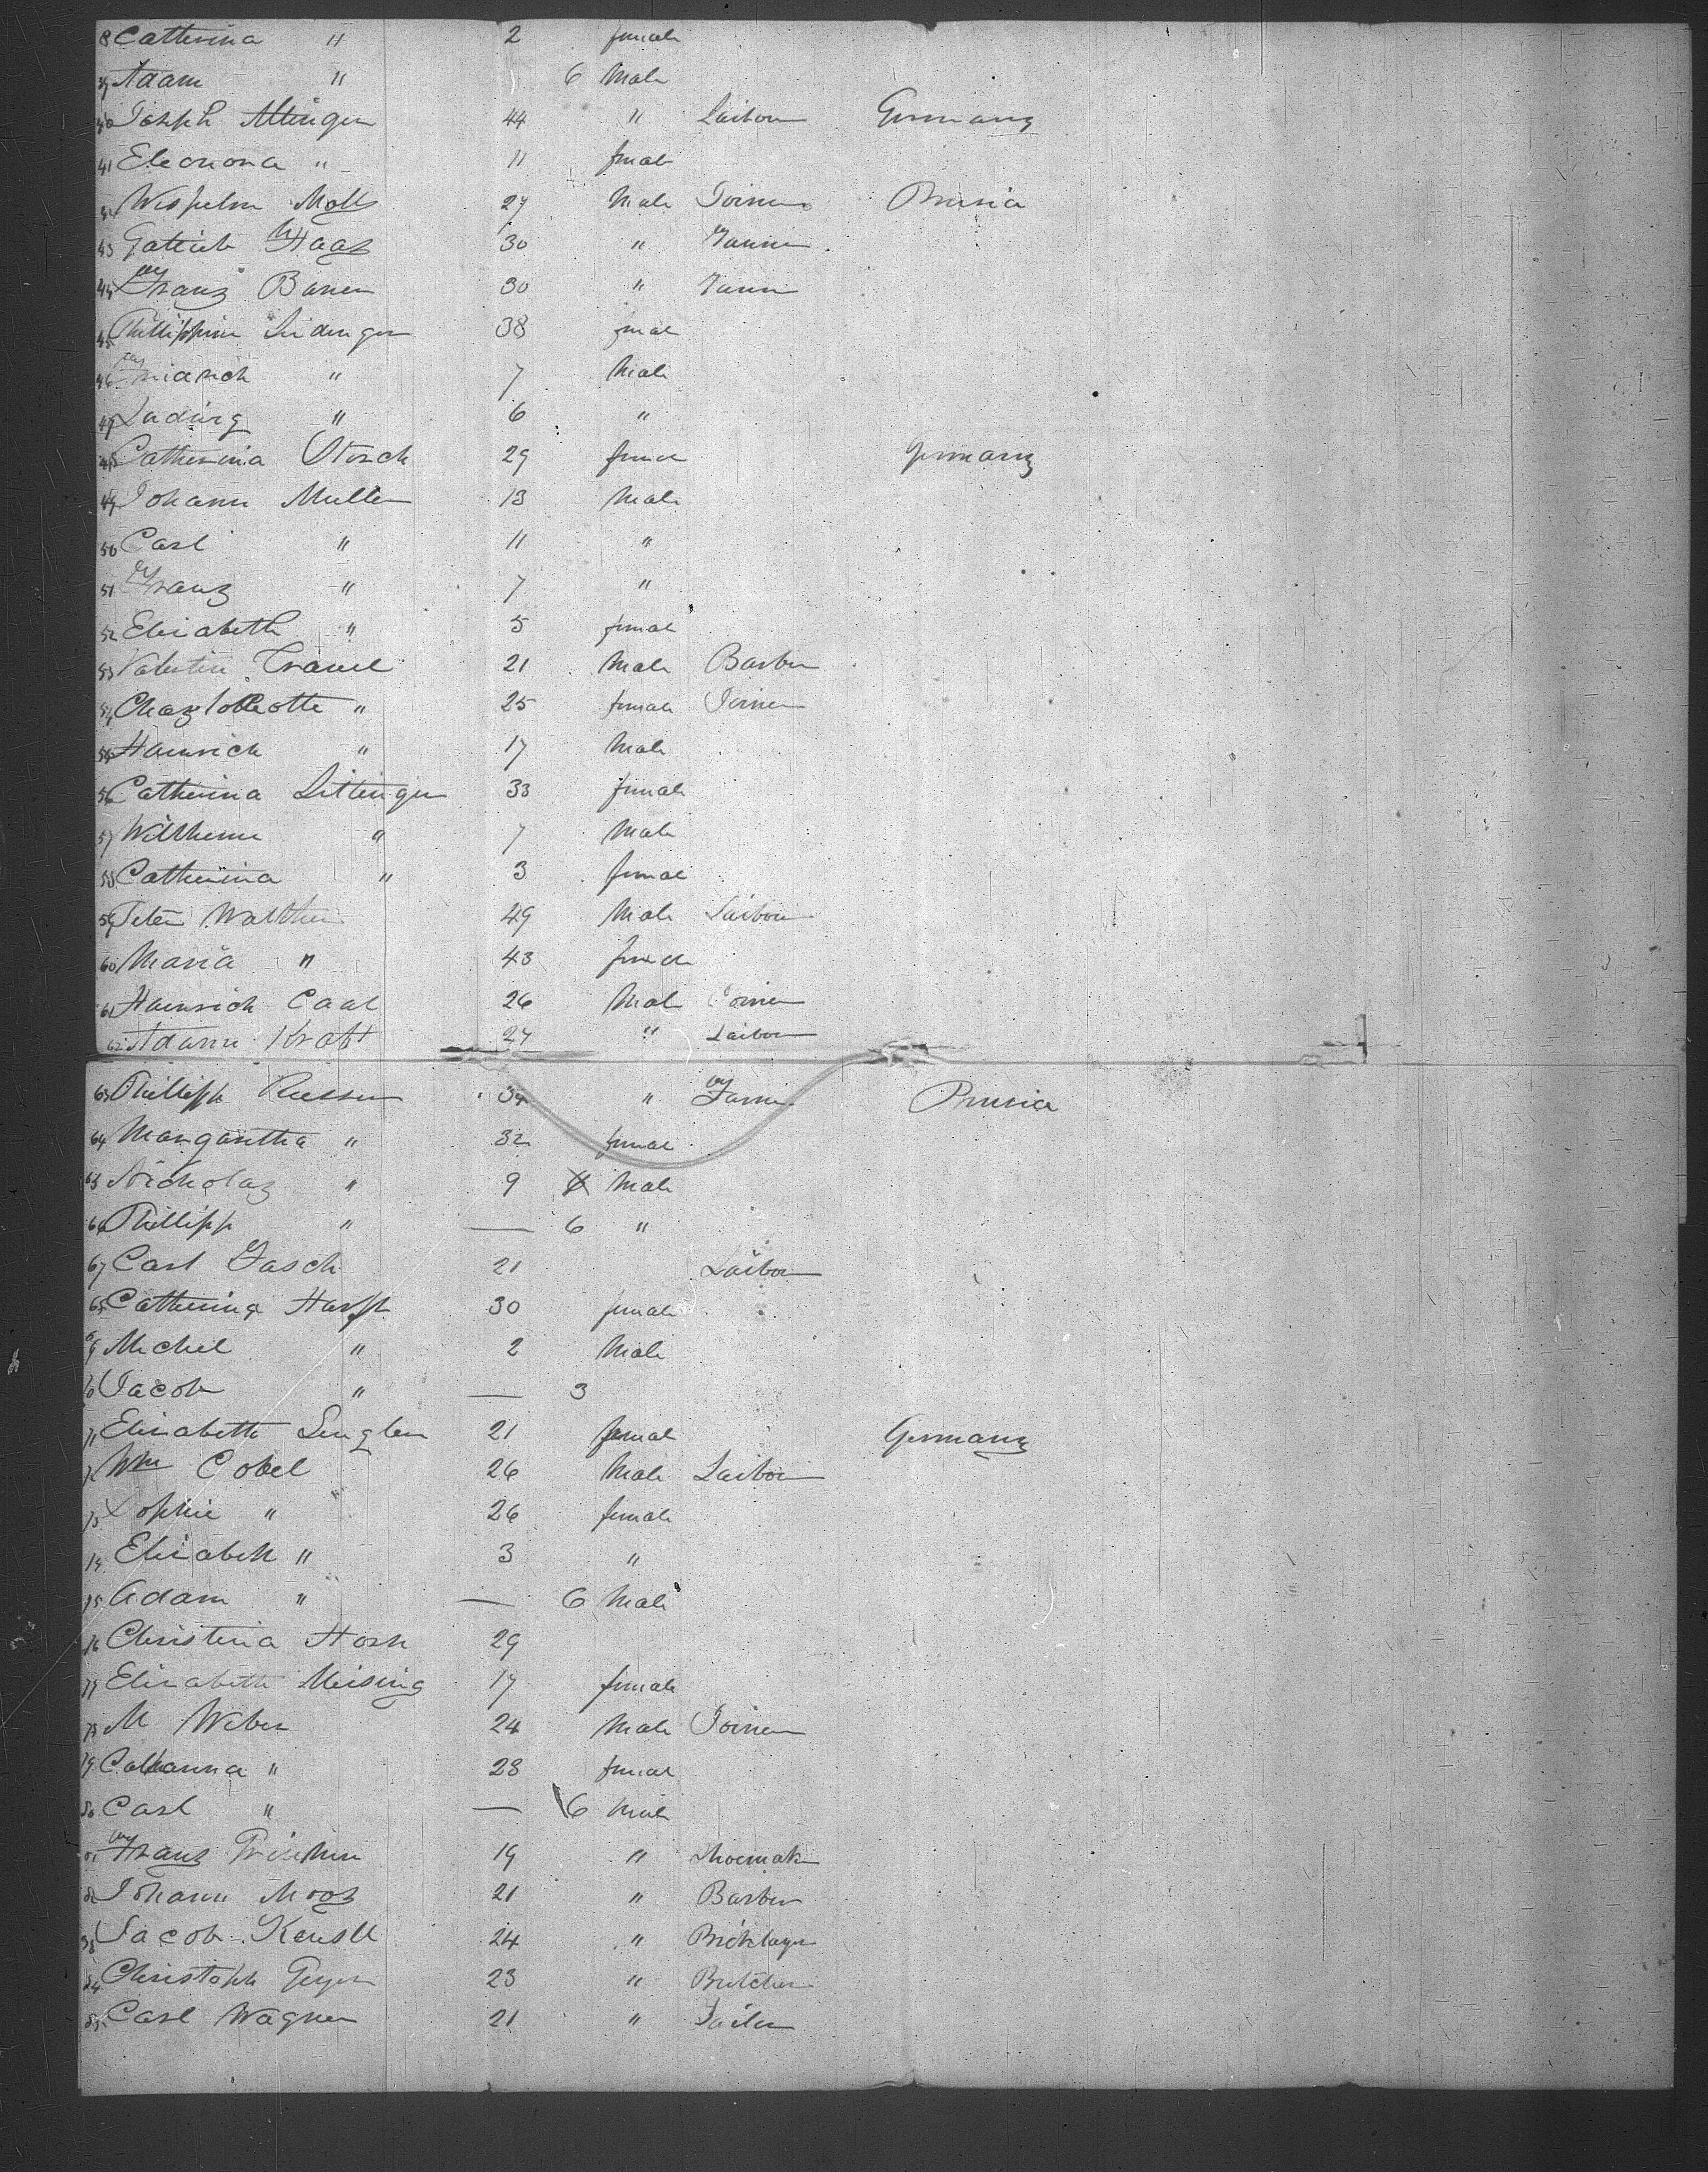 8 Catherina " 2 female
39 Adam " 6 Male
40 Joseph Altinger 44 " Laibour Germany
41 Eleonora " 11 female
42 Wilhelm Moll 27 Male Joiner Prusia
43 Gotlieb Haas 30 "
44 Franz Bauer 30 "
45 Phillippine Leidinger 38 female
46 " 7 Male
47 Ludwig " 6 "
48 Catherina Storck 29 female Germany
49 Johann Muller 13 Male
50 Carl " 11 "
51 Franz " 7 "
52 Elisabeth " 5 female
53 Valentin Trauel 21 Male Barber
54 Charlotte " 25 female Joiner
55 Hainrich " 17 Male
56 Catherina Littinger 33 female
57 Wilthem " 7 Male
58 Catherina " 3 female
59 Peter Walther 49 Male Laibour
60 Maria " 43 female
61 Hainrich Caal 26 Male Joiner
62 Adam Kraft 27 " Laibour
63 Phillipp 34 " Farmer Prusia
64 Margaretha " 32 female
65 Nicholas " 9 Male
66 Phillipp " — 6 "
67 Carl Fasch 21 Laibour
68 Catherina 30 female
69 Michel " 2 Male
70 Jacob " — 3
71 Elisabeth Lengler 21 female Germany
72 Wm Gobel 26 Male Laibour
73 Sophie " 26 female
74 Elisabeth " 3 "
75 Adam " — 6 Male
76 Christina Horn 29
77 Elisabeth Meising 17 female
78 M Weber 24 Male Joiner
79 Catharina " 28 female
80 Carl " — 6 Male
81 Franz 19 " Shoemak
82 Johann Moos 21 " Barber
83 Jacob 24 " Bricklayer
84 Christoph Geyer 23 " Butcher
85 Carl Wagner 21 " Tailer